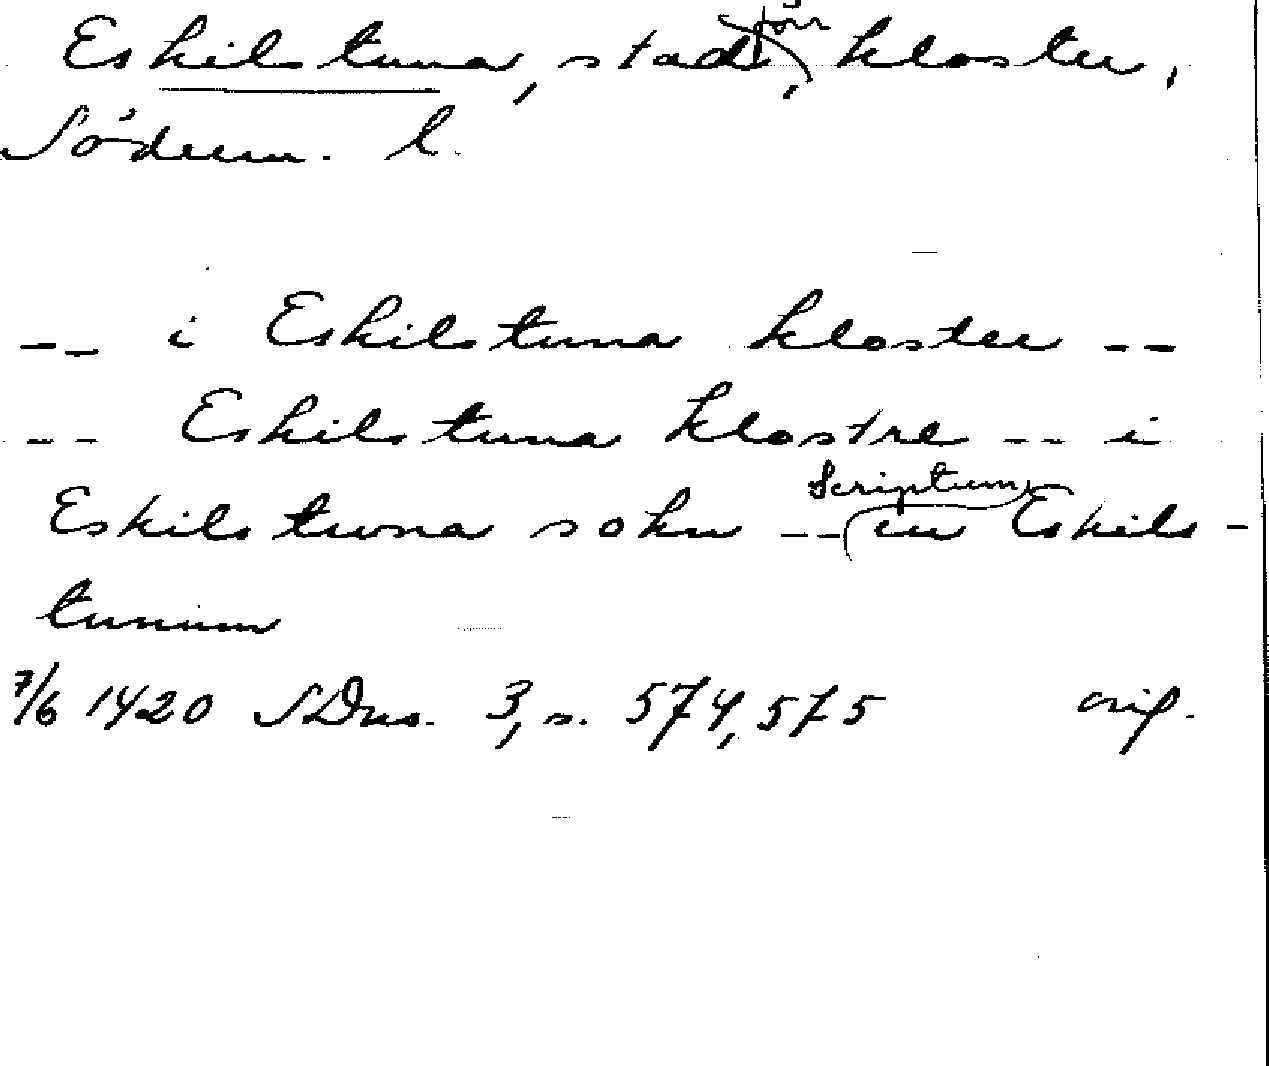 Eskilstuna, stad, förr kloster,
Söderm. l.
-- i Eskilstuna kloster --
-- Eskilstuna klostre -- i
Eskilstuna sokn -- Scriptum in Eskils-
tunum
7/6 1420 SDns. 3, s. 574, 575 orig.